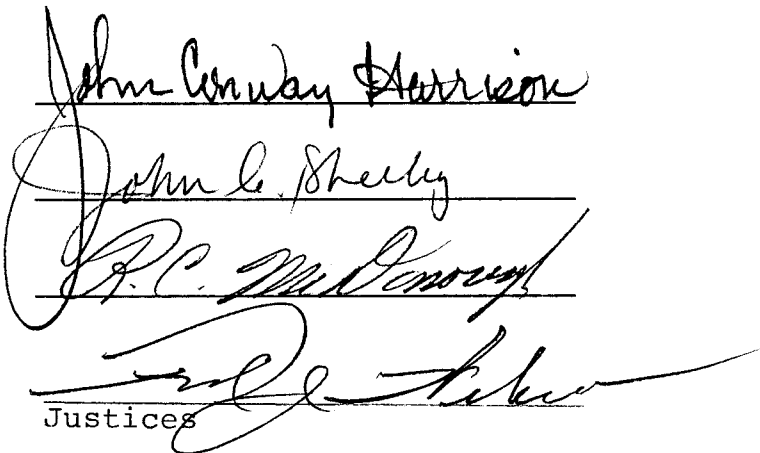 John Conway Harrison
John C. Sheehy
R. C. McDonough
Justices